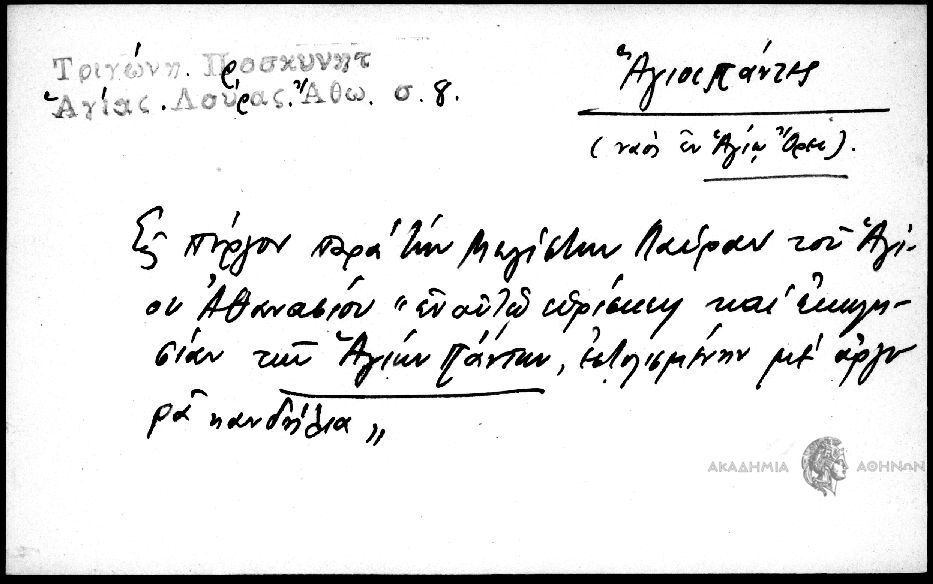 Τριγώνη. Προσκυνητ
Ἁγίας. Λαύρας. Ἄθω. σ. 8.
Ἅγιοι πάντες
(ναὸς ἐν Ἁγίῳ Ὄρει).
Εἰς πύργον παρὰ τὴν Μεγίστην Λαύραν τοῦ Ἁγί-
ου Ἀθανασίου "ἐν αὐτῷ εὑρίσκεις καὶ ἐκκλη-
σίαν τῶν Ἁγίων Πάντων, ἐστολισμένην μὲ ἀργυ
ρᾶ κανδήλια"
ΑΚΑΔΗΜΙΑ ΑΘΗΝΩΝ